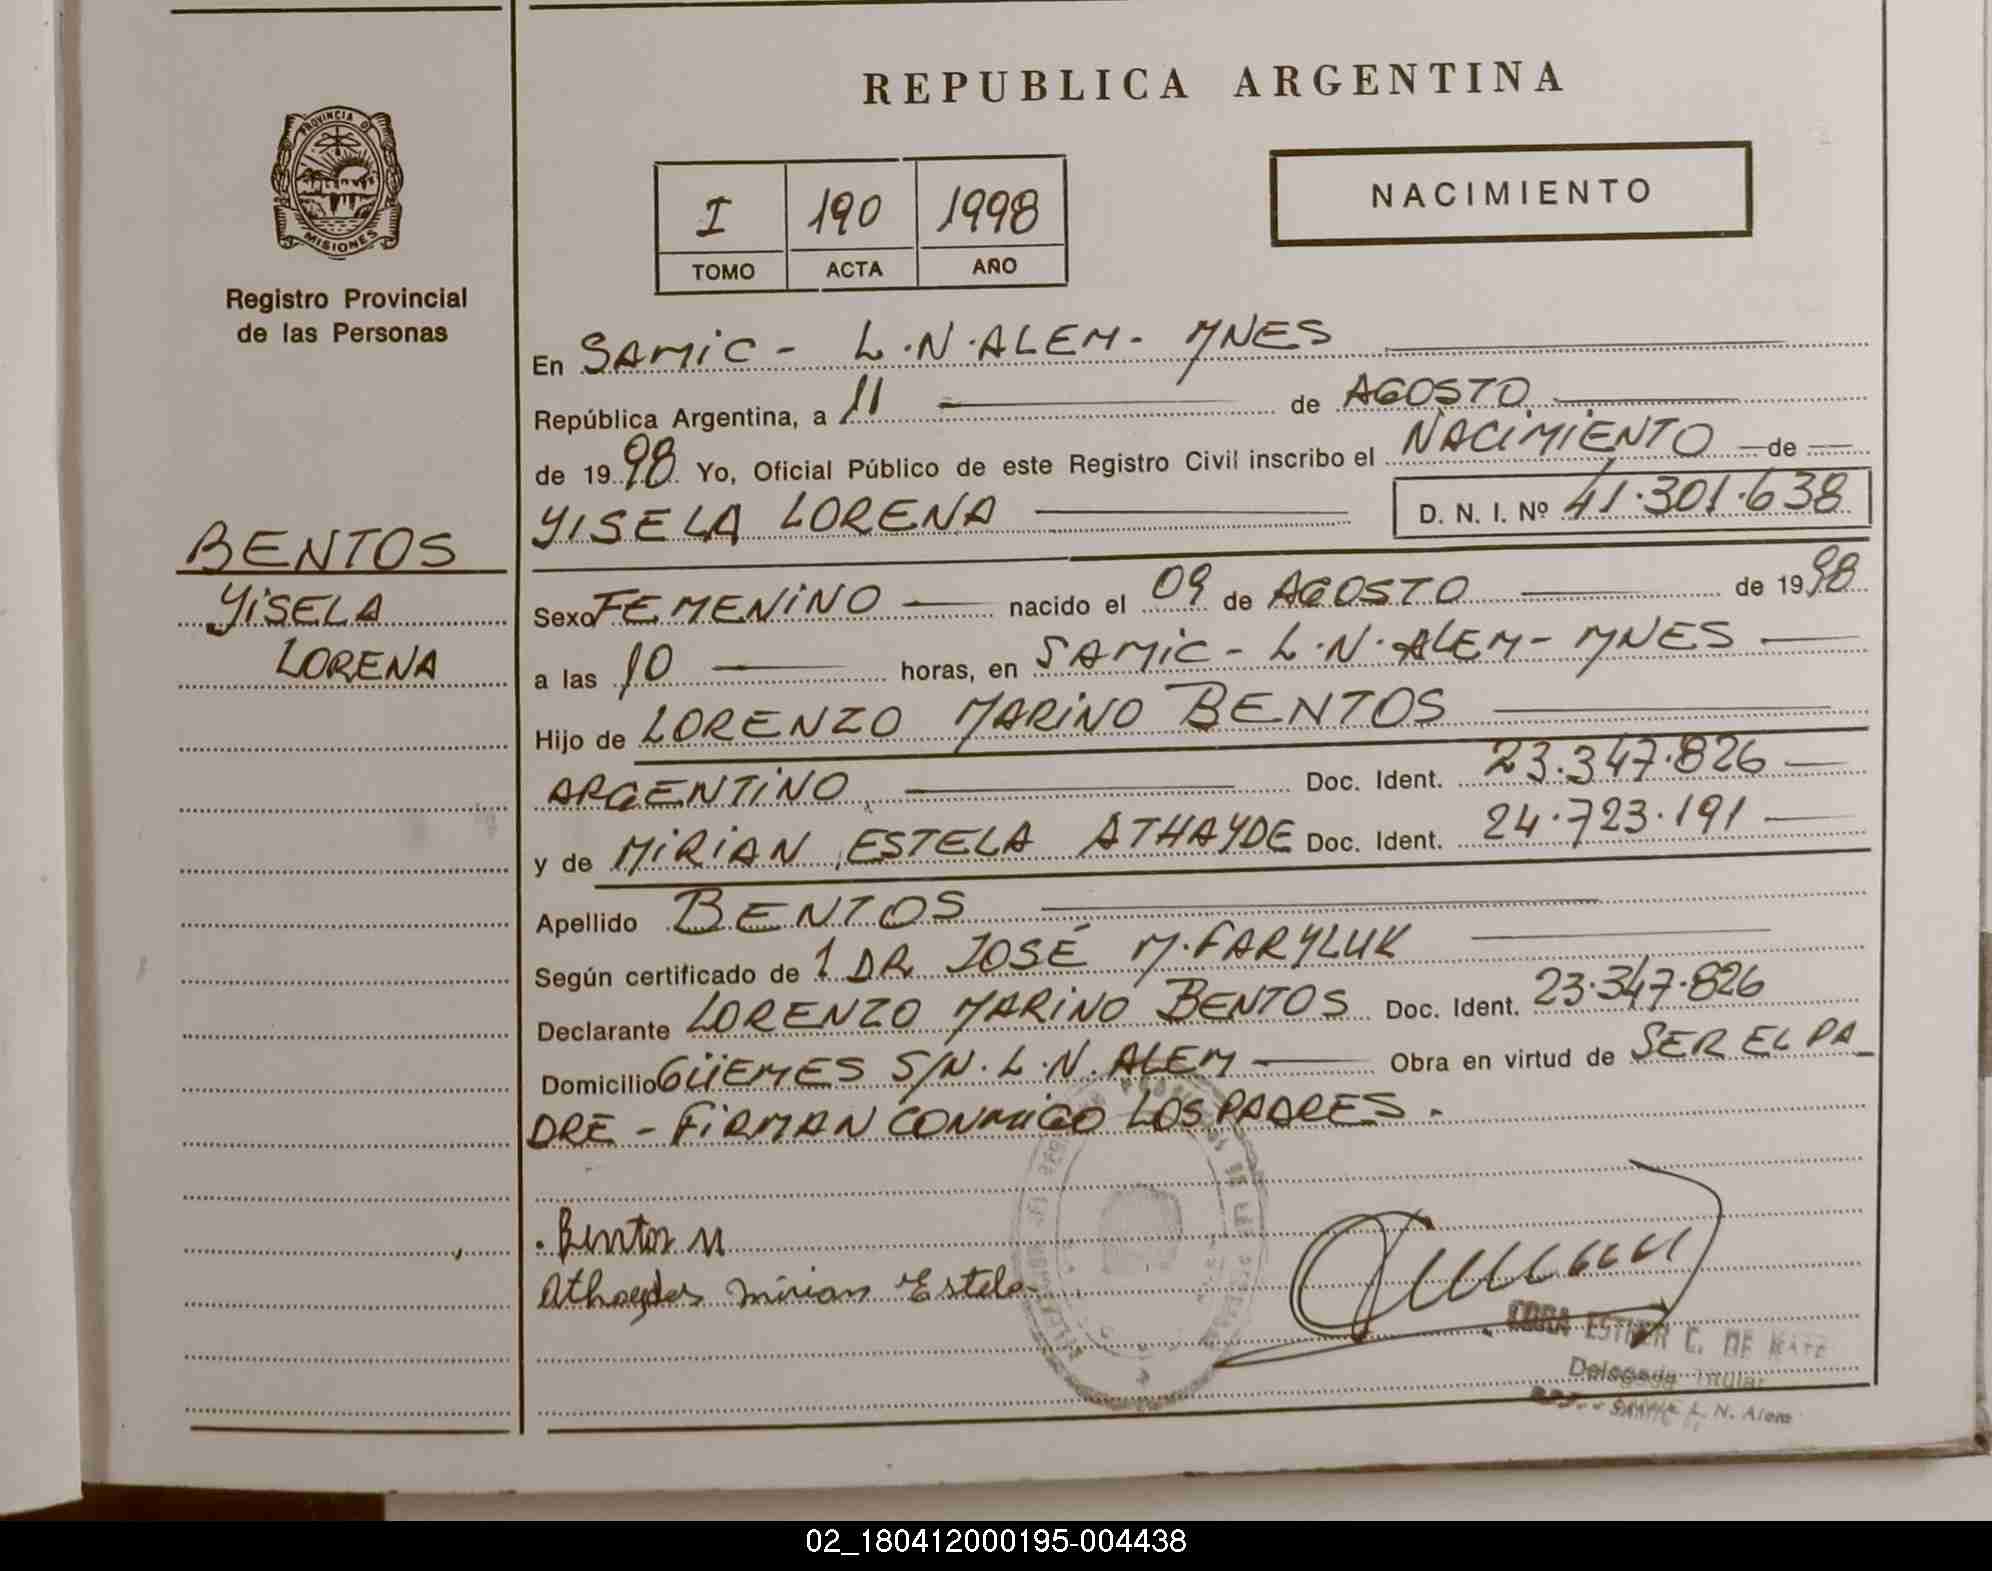 REPUBLICA ARGENTINA
PROVINCIA DE
MISIONES
Registro Provincial
de las Personas
I 190 1998
TOMO ACTA AÑO
NACIMIENTO
En SAMIC - L.N. ALEM - MNES
República Argentina, a 11 de AGOSTO
de 1998 Yo, Oficial Público de este Registro Civil inscribo el NACIMIENTO de
YISELA LORENA D. N. I. Nº 41.301.638
BENTOS
YISELA
LORENA
Sexo FEMENINO nacido el 09 de AGOSTO de 1998
a las 10 horas, en SAMIC - L.N. ALEM - MNES
Hijo de LORENZO MARINO BENTOS
ARGENTINO Doc. Ident. 23.347.826
y de MIRIAN ESTELA ATHAYDE Doc. Ident. 24.723.191
Apellido BENTOS
Según certificado de 1 DR JOSÉ M. FARYLUK
Declarante LORENZO MARINO BENTOS Doc. Ident. 23.347.826
Domicilio GÜEMES S/N. L.N. ALEM Obra en virtud de SER EL PA_
DRE - FIRMAN CONMIGO LOS PADRES.
Bentos M
Athaydes Mirian Estela
ESTHER C. DE
Delegada Titular
L. N. Alem
02_180412000195-004438